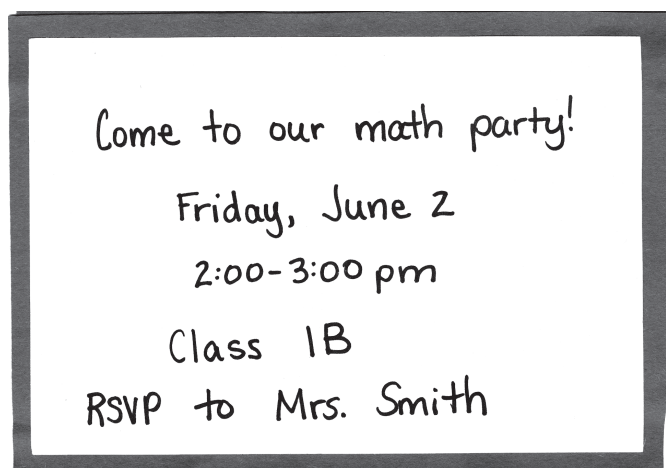 Come to our math party!
Friday, June 2
2:00-3:00 pm
Class 1B
RSVP to Mrs. Smith